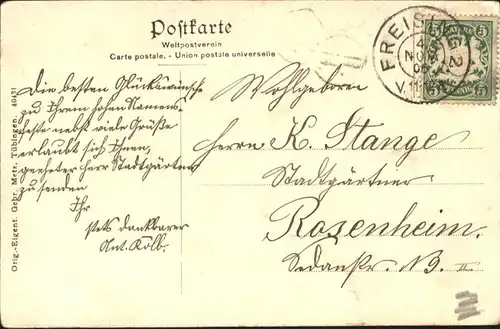 Postkarte
Weltpostverein
Carte postale. - Union postale universelle
FREIS
4
NO
V. 11
5 5
5 5
Die besten Glückwünsche
zu Ihrem hohen Namens-
feste nebst viele Grüße
erlaubt sich Ihnen,
geehrter Herr Stadtgärtner
zu senden
Ihr
stets dankbarer
Ant. Kölb.
Wohlgeboren
Herrn K. Stange
Stadtgärtner
Rosenheim.
Sedanstr. No. II
Orig.-Eigent. Gebr. Metz, Tübingen. 40431